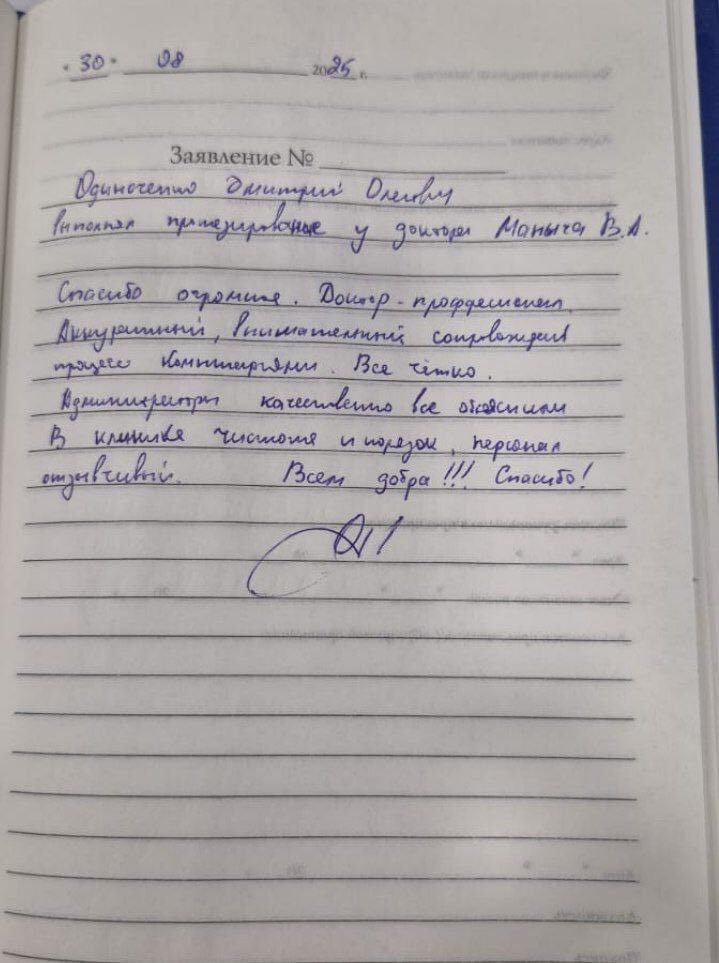 "30" 08 2025 г.
Заявление №
Одиноченко Дмитрий Олегович
выполнял протезирование у доктора Маныча В.А.
Спасибо огромное. Доктор - профдесионал.
Аккуратный, внимательный сопровождал
процесс комментариями. Все чётко.
Администраторы качественно все объяснили
В клинике чистота и порядок, персонал
отзывчивый. Всем добра!!! Спасибо!